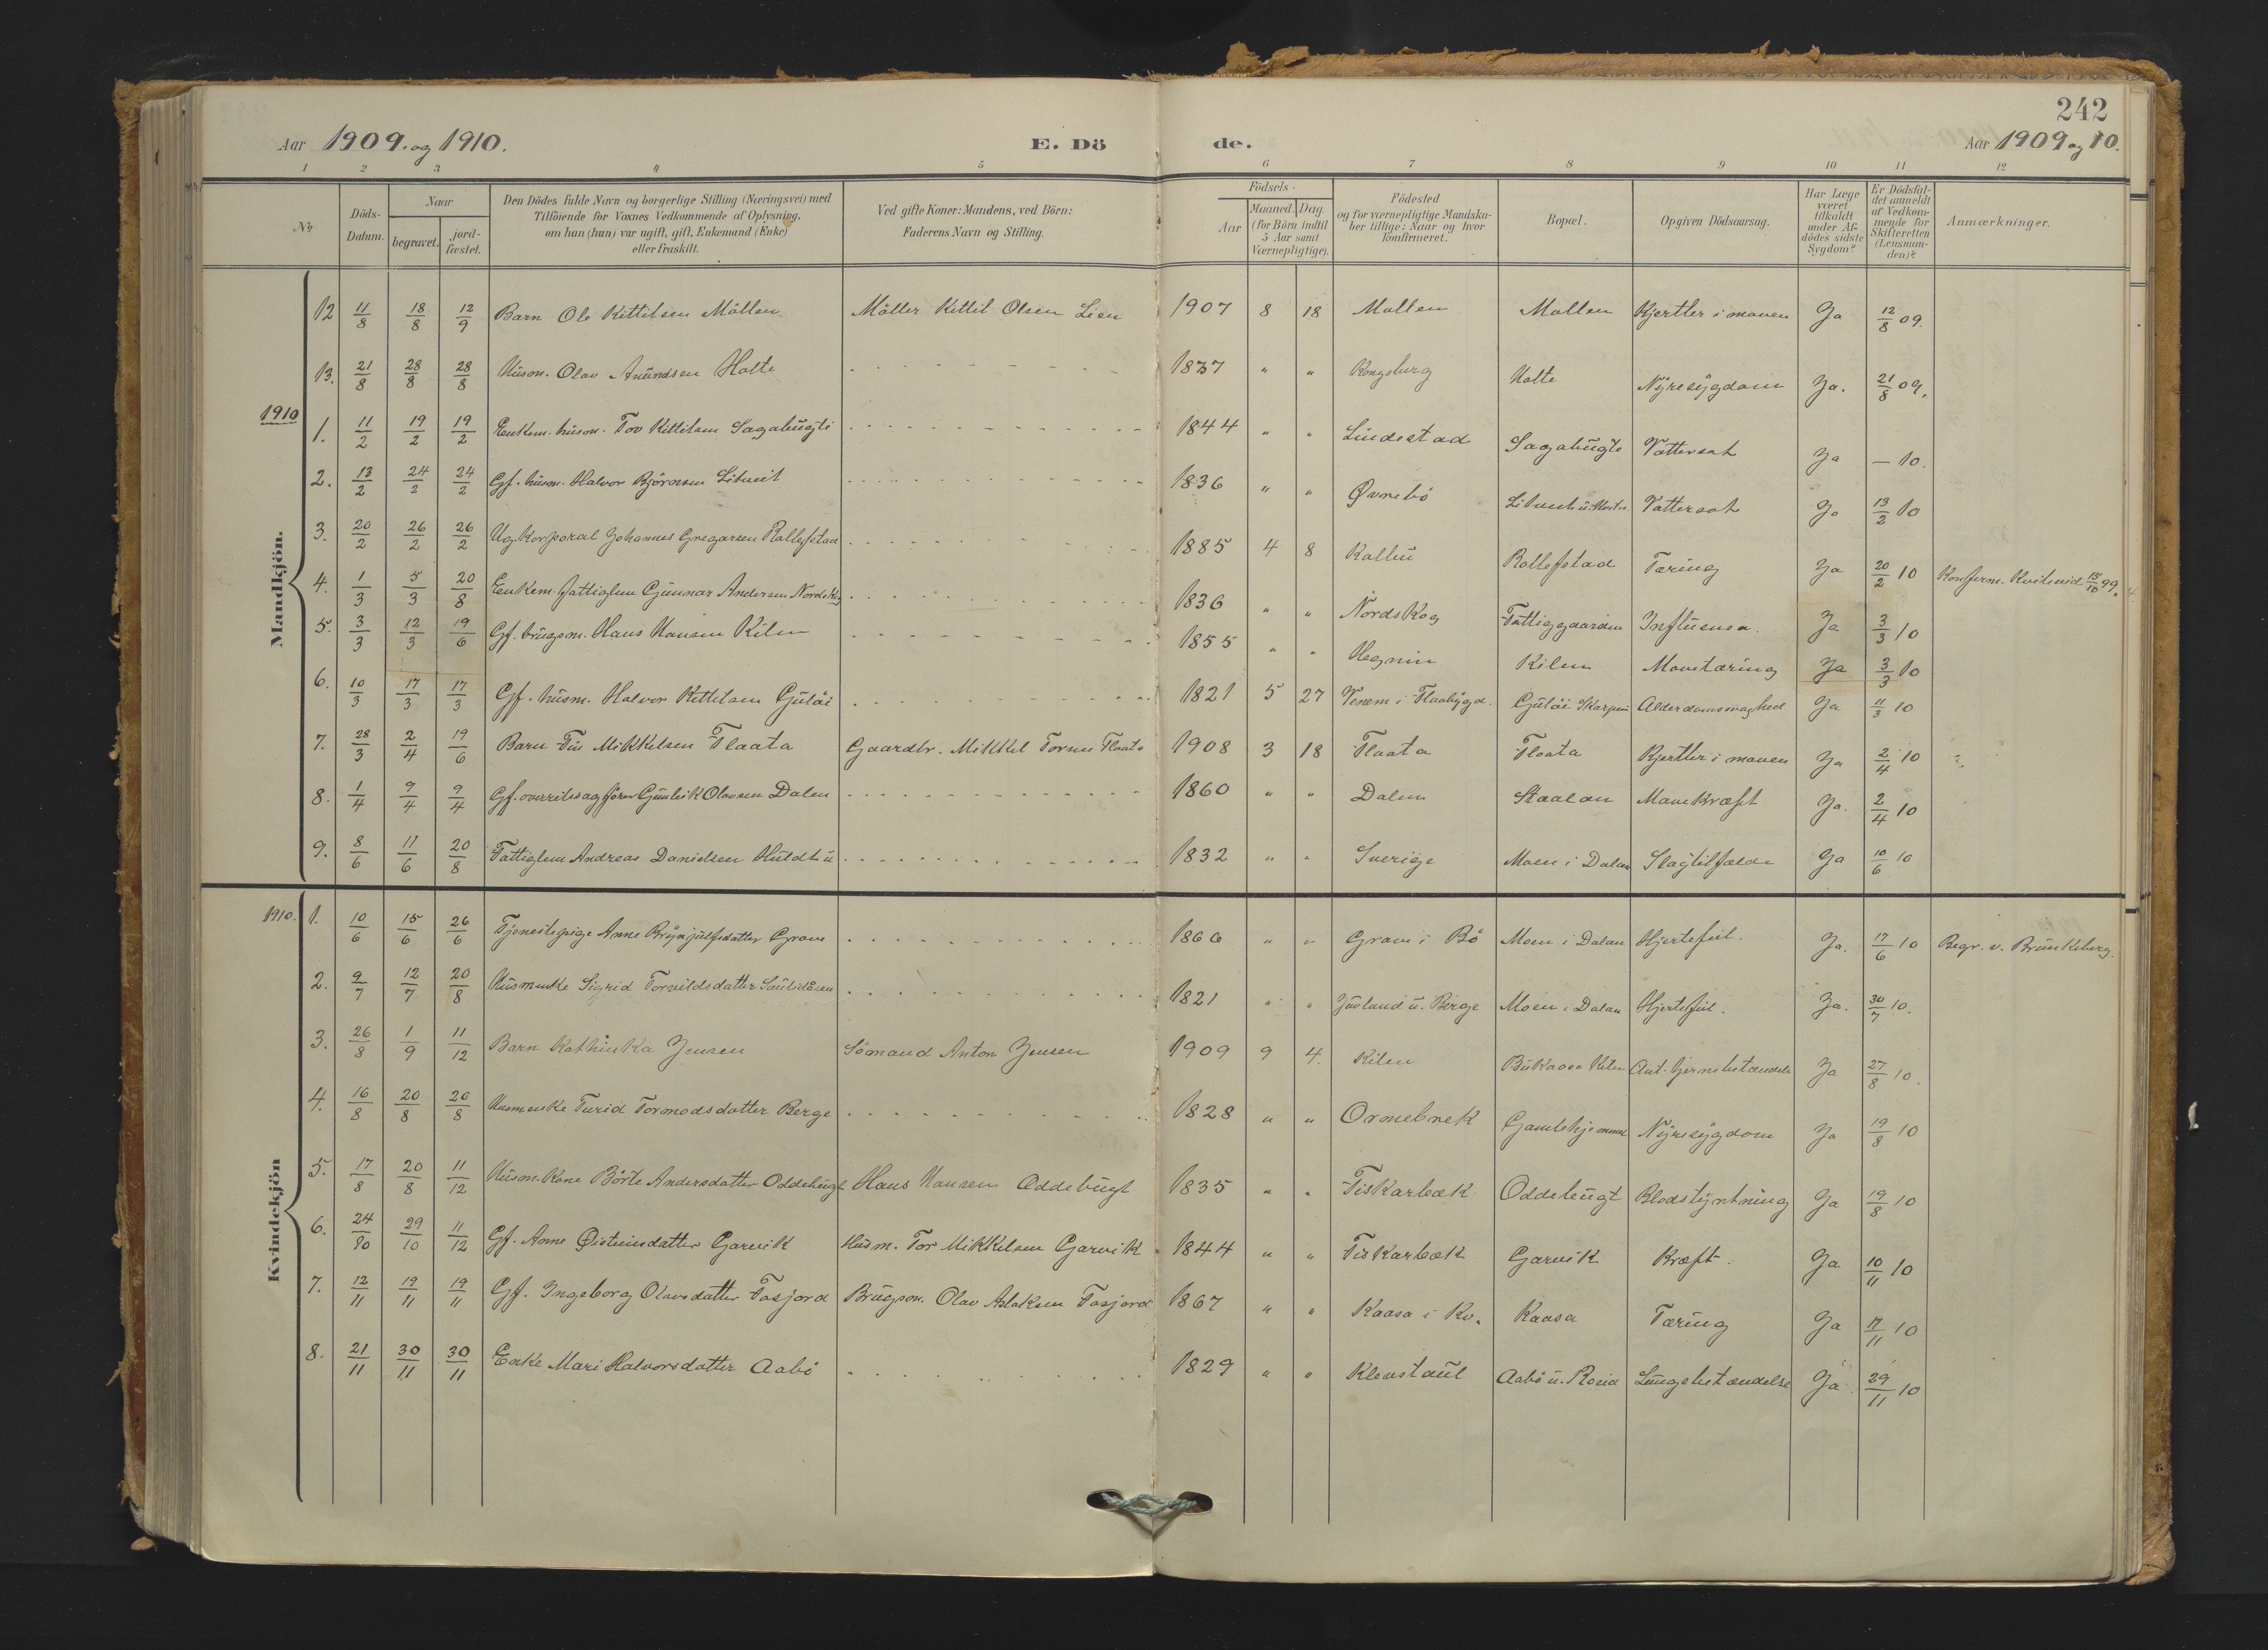 242
Aar 1909. og 1910. E. Dö de. Aar 1909 og 10.
1 2 3 4 5 6 7 8 9 10 11 12
№ Döds-Datum. Naar begravet. jord-fæstet. Den Dödes fulde Navn og borgerlige Stilling (Næringsvei) med Tilföiende for Voxnes Vedkommende af Oplysning, om han (hun) var ugift, gift, Enkemand (Enke) eller fraskilt. Ved gifte Koner: Mandens, ved Börn: Faderens Navn og Stilling. Födsels- Aar Maaned. Dag. (for Börn indtil 5 Aar samt Værnepligtige). Födested og for værnepligtige Mandskaber tillige: Naar og hvor konfirmeret. Bopæl. Opgiven Dödsaarsag. Har Læge været tilkaldt under Afdödes sidste Sygdom? Er Dödsfaldet anmeldt af Vedkommende for Skifteretten (Lensmanden)? Anmærkninger.
Mandkjön.
12 11/8 18/8 12/9 Barn Ole Kittilsen Möllen Möller Kittil Olsen Lien 1907 8 18 Mollen Mollen Kjertler i maven Ja 12/8 09.
13. 21/8 28/8 28/8 Husm. Olav Anundsen Holte 1837 " " Kongsberg Holte Nyresygdom Ja. 21/8 09.
1910
1. 11/2 19/2 19/2 Enkem. husm. Tov Kittilsen Sagabugti 1844 " " Lindestad Sagabugte Vattersot Ja — 10.
2. 13/2 24/2 24/2 Gf. husm. Halvor Björnsen 1836 " " Øvrebö Vattersot Ja 13/2 10
3. 20/2 26/2 26/2 Ug. Korporal Johannes Gregarsen Rollefstad 1885 4 8 Rollefstad Tæring Ja 20/2 10 Konferm. Kvitseid 15/10 99.
4. 1/3 5/3 20/8 Enkem. fattiglem Gunnar Andersen Nordskog 1836 " " Nordskog Fattiggaarden Influensa. Ja 3/3 10
5. 3/3 12/3 19/6 Gf. brugsm. Hans Hansen Kilen 1855 " " Hegnin Kilen Mavetæring Ja 3/3 10
6. 10/3 17/3 17/3 Gf. husm. Halvor Kittilsen Gulöi 1821 5 27 Venem i Flaabygd. Gulöi Alderdomsvaghed Ja 11/3 10
7. 28/3 2/4 19/6 Barn Tur Mikkelsen Flaata Gaardbr. Mikkel Flaata 1908 3 18 Flaata Flaata Kjertler i maven Ja 2/4 10
8. 1/4 9/4 9/4 Gf. overretssagförer Gunleik Olavsen Dalen 1860 " " Dalen Staalan Mavekræft Ja. 2/4 10
9. 8/6 11/6 20/8 Fattiglem Andreas Danielsen 1832 " " Sverige Moen i Dalan Slagtilfælde Ja 10/6 10
Kvindekjön
1910. 1. 10/6 15/6 26/6 Tjenestepige Anne Brynjulfsdatter Grave 1866 " " Grave i Bö Moen i Dalan Hjertefeil. Ja. 17/6 10 Begr. v. Brunkeberg.
2. 9/7 12/7 20/8 Husmenke Sigrid Torvildsdatter 1821 " " Juvland u. Berge Moen i Dalan Hjertefeil. Ja. 30/7 10.
3. 26/8 1/9 11/12 Barn Kathinka Jensen Sömand Anton Jensen 1909 9 4. Kilen Bukaasa Kilen Aut. hjernebetændelse Ja 27/8 10.
4. 16/8 20/8 20/8 Husmenke Turid Tormodsdatter Berge 1828 " " Ormebrek Gamlehjemmet Nyresygdom Ja 19/8 10
5. 17/8 20/8 11/12 Husm. Kone Börte Andersdatter Oddebugt Hans Hansen Oddebugt 1835 " " Fiskarbæk Oddebugt Blodstyrtning Ja 19/8 10
6. 24/10 29/10 11/12 Gf. Anne Øisteinsdatter Garvik Husm. Tor Mikkelsen Garvik 1844 " " Fiskarbæk Garvik Kræft. Ja 10/11 10
7. 12/11 19/11 19/11 Gf. Ingeborg Olavsdatter Fosjord Brugsm. Olav Aslaksen Fosjord 1867 " " Kaasa i Kv. Kaasa Tæring Ja 17/11 10
8. 21/11 30/11 30/11 Enke Mari Halvorsdatter Aabö 1829 " " Klevstaul Aabö u. Roeid Lungebetændelse Ja 29/11 10